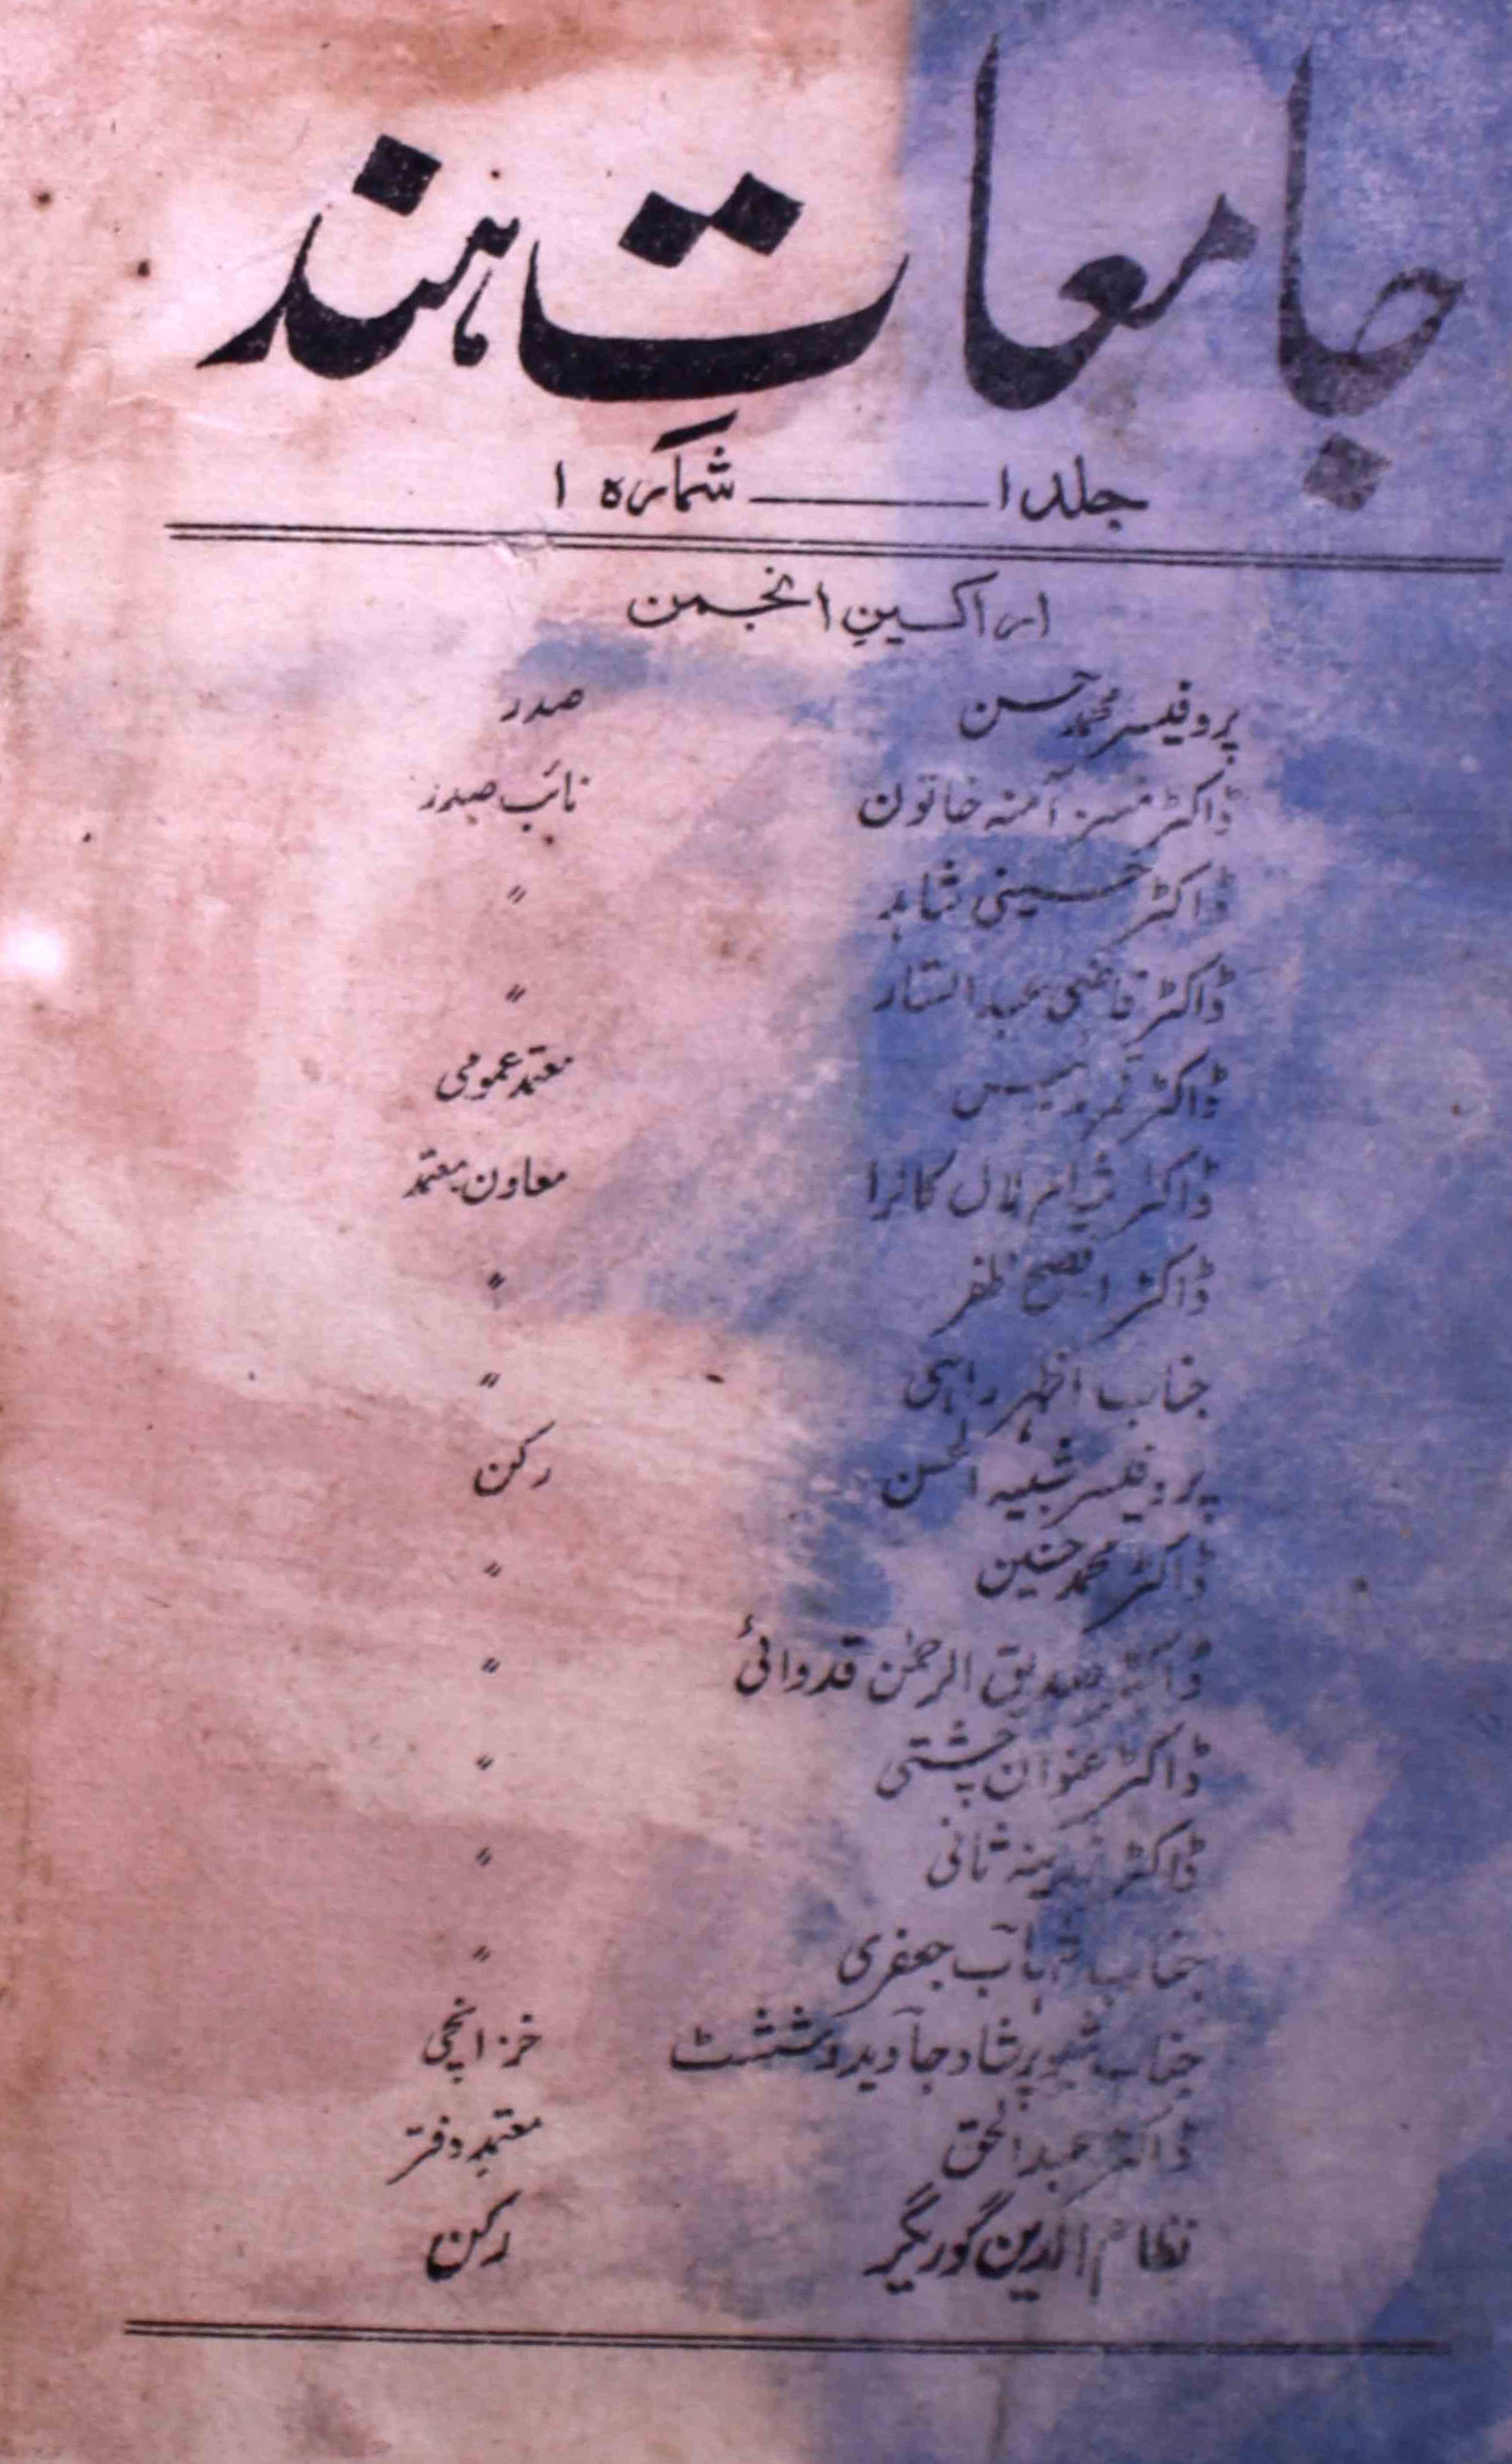 جامعاتِ ہند
جلد ۱ ــــــ شمارہ ۱
اراکینِ انجمن
پروفیسر محمد حسن صدر
ڈاکٹر مسز آمنہ خاتون نائب صدر
ڈاکٹر حسینی شاہد "
ڈاکٹر قاضی عبدالستار "
ڈاکٹر قمر رئیس معتمد عمومی
ڈاکٹر شیام لال کالرا معاون معتمد
ڈاکٹر افصح ظفر "
جناب اظہر راہی "
پروفیسر شبیہ الحسن رکن
ڈاکٹر محمد حسنین "
ڈاکٹر صدیق الرحمٰن قدوائی "
ڈاکٹر عنوان چشتی "
ڈاکٹر زرینہ ثانی "
جناب شہاب جعفری "
جناب شیو پرشاد جاوید وششٹ خزانچی
ڈاکٹر عبدالحق معتمدِ دفتر
نظام الدین گوریگر رکن